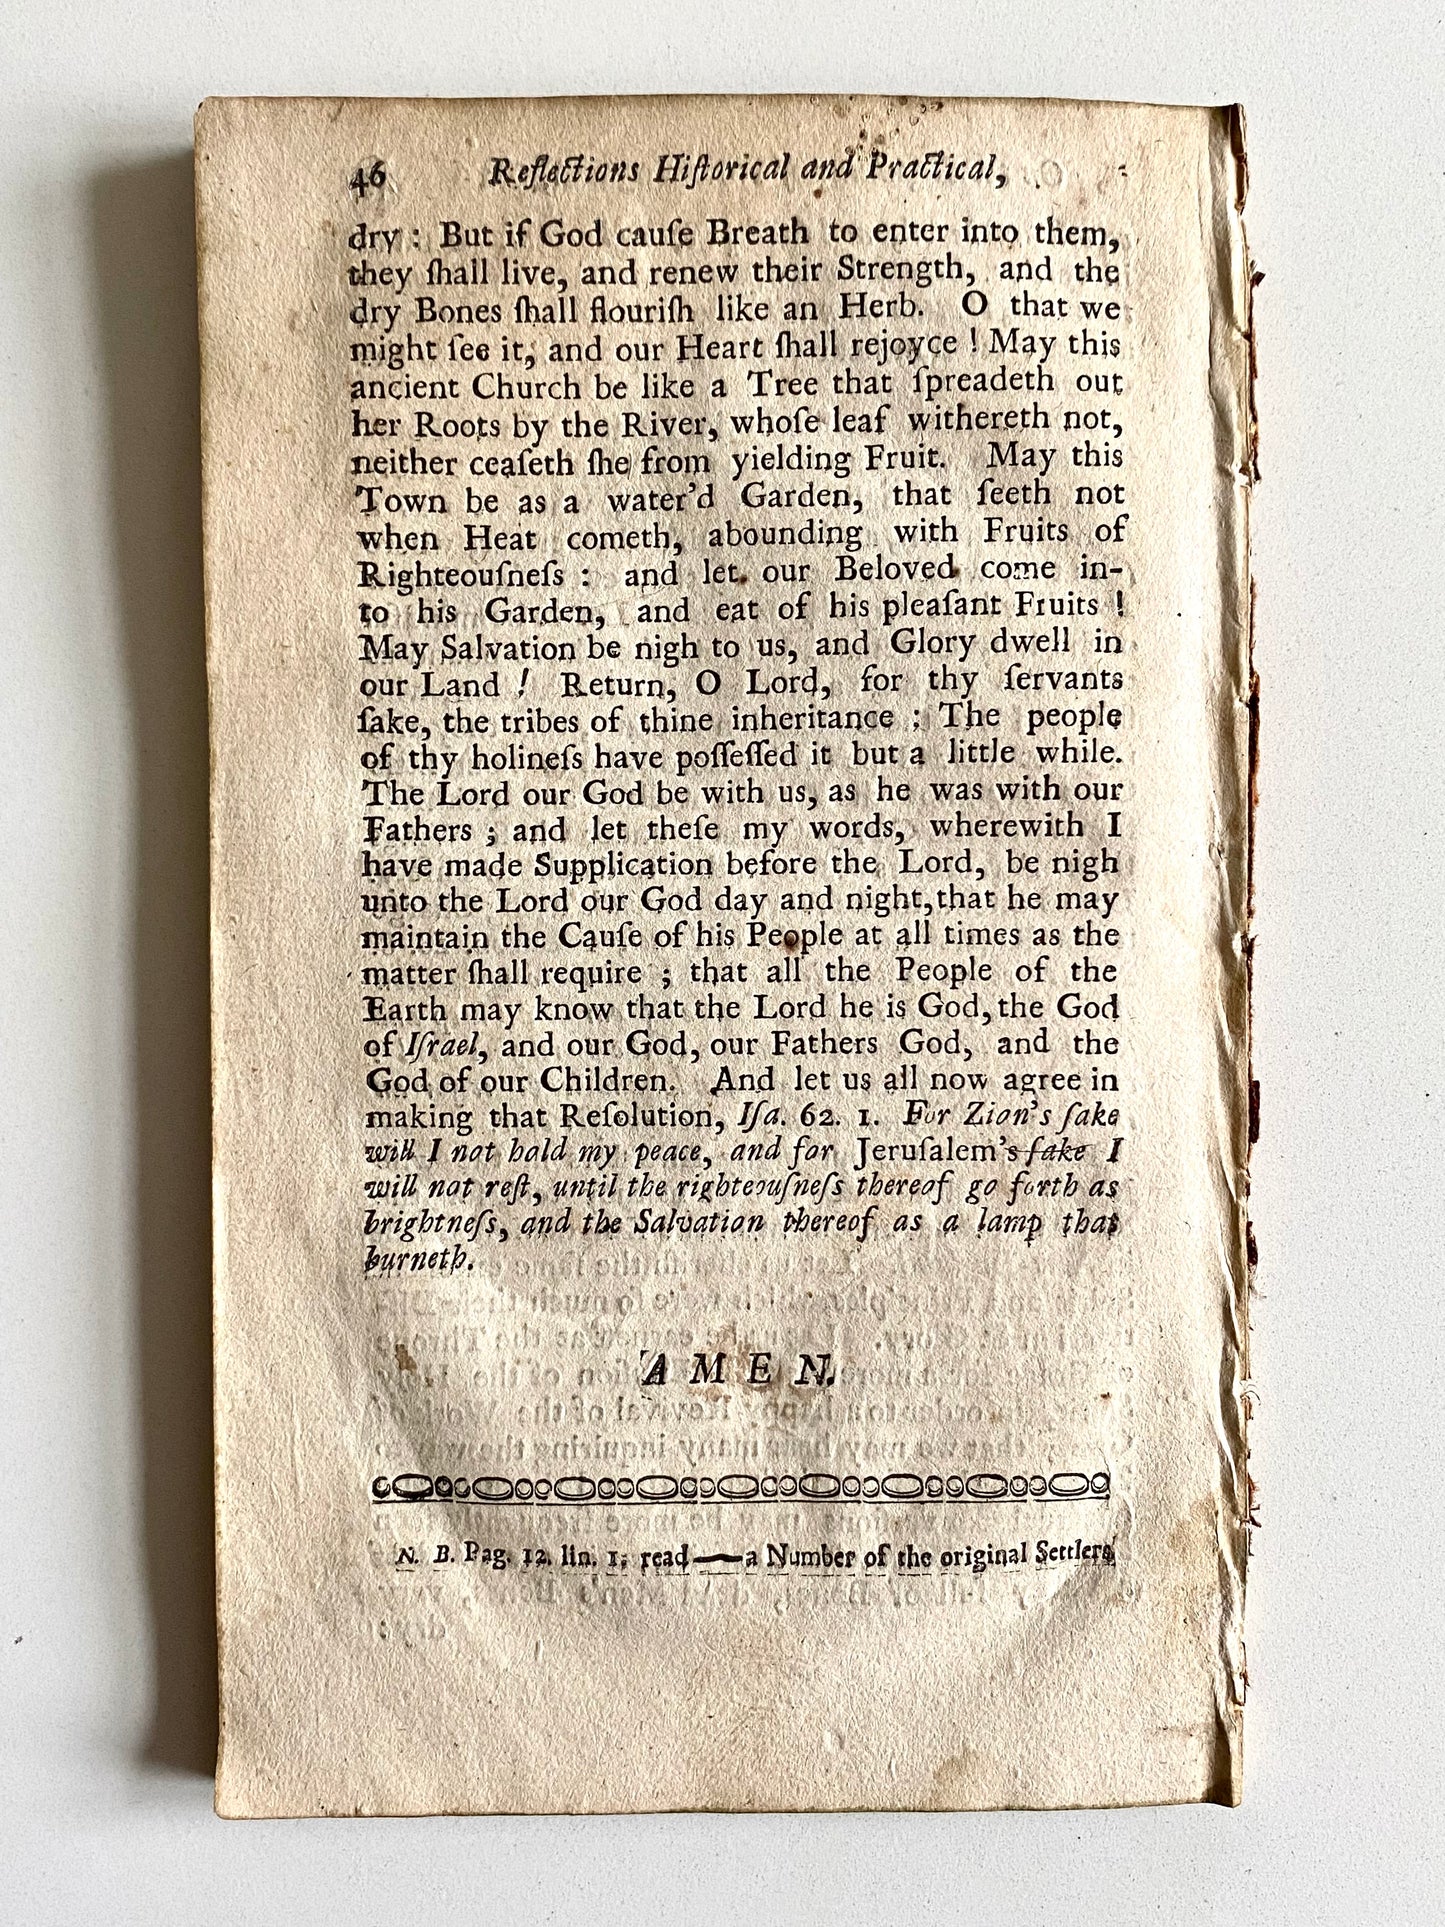 46 Reflections Hiſtorical and Practical,
dry : But if God cauſe Breath to enter into them,
they ſhall live, and renew their Strength, and the
dry Bones ſhall flouriſh like an Herb. O that we
might ſee it, and our Heart ſhall rejoyce ! May this
ancient Church be like a Tree that ſpreadeth out
her Roots by the River, whoſe leaf withereth not,
neither ceaſeth ſhe from yielding Fruit. May this
Town be as a water'd Garden, that ſeeth not
when Heat cometh, abounding with Fruits of
Righteouſneſs : and let our Beloved come in-
to his Garden, and eat of his pleaſant Fruits !
May Salvation be nigh to us, and Glory dwell in
our Land ! Return, O Lord, for thy ſervants
ſake, the tribes of thine inheritance ; The people
of thy holineſs have poſſeſſed it but a little while.
The Lord our God be with us, as he was with our
Fathers ; and let theſe my words, wherewith I
have made Supplication before the Lord, be nigh
unto the Lord our God day and night, that he may
maintain the Cauſe of his People at all times as the
matter ſhall require ; that all the People of the
Earth may know that the Lord he is God, the God
of Iſrael, and our God, our Fathers God, and the
God of our Children. And let us all now agree in
making that Reſolution, Iſa. 62. 1. For Zion's ſake
will I not hold my peace, and for Jeruſalem's ſake I
will not reſt, until the righteouſneſs thereof go forth as
brightneſs, and the Salvation thereof as a lamp that
burneth.
AMEN.
N. B. Pag. 12. lin. 1. read—a Number of the original Settlers